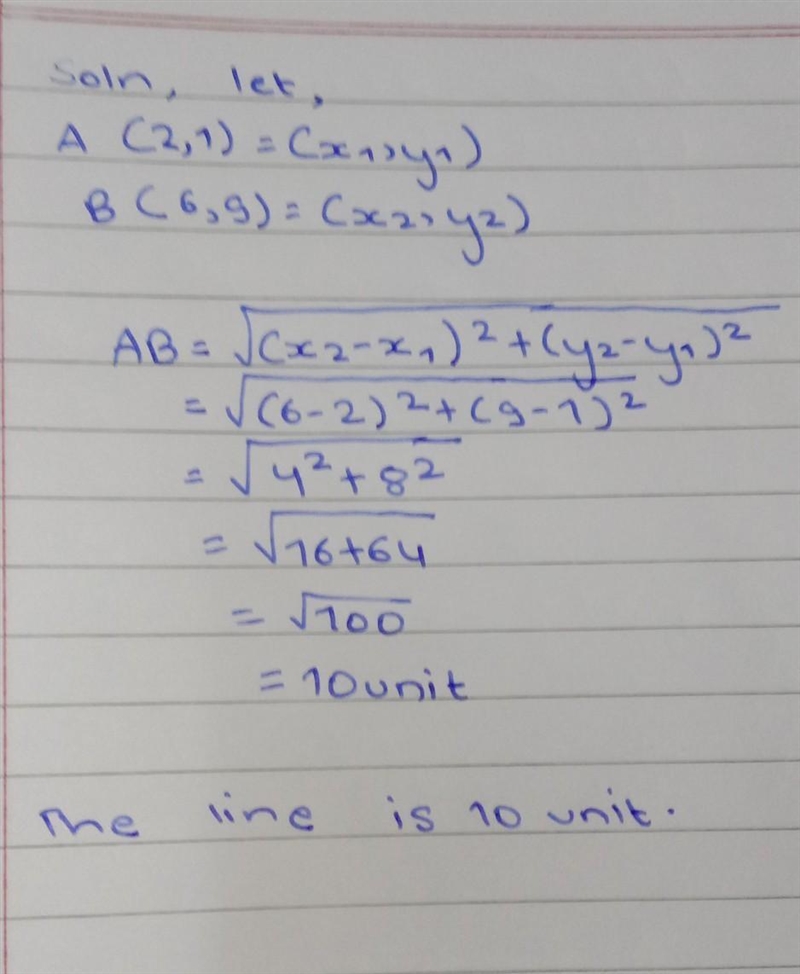 Soln, let,
A (2,1) = (x1,y1)
B (6,9) = (x2,y2)
AB = √(x2-x1)²+(y2-y1)²
= √(6-2)²+(9-1)²
= √4²+8²
= √16+64
= √100
= 10unit
The line is 10 unit.